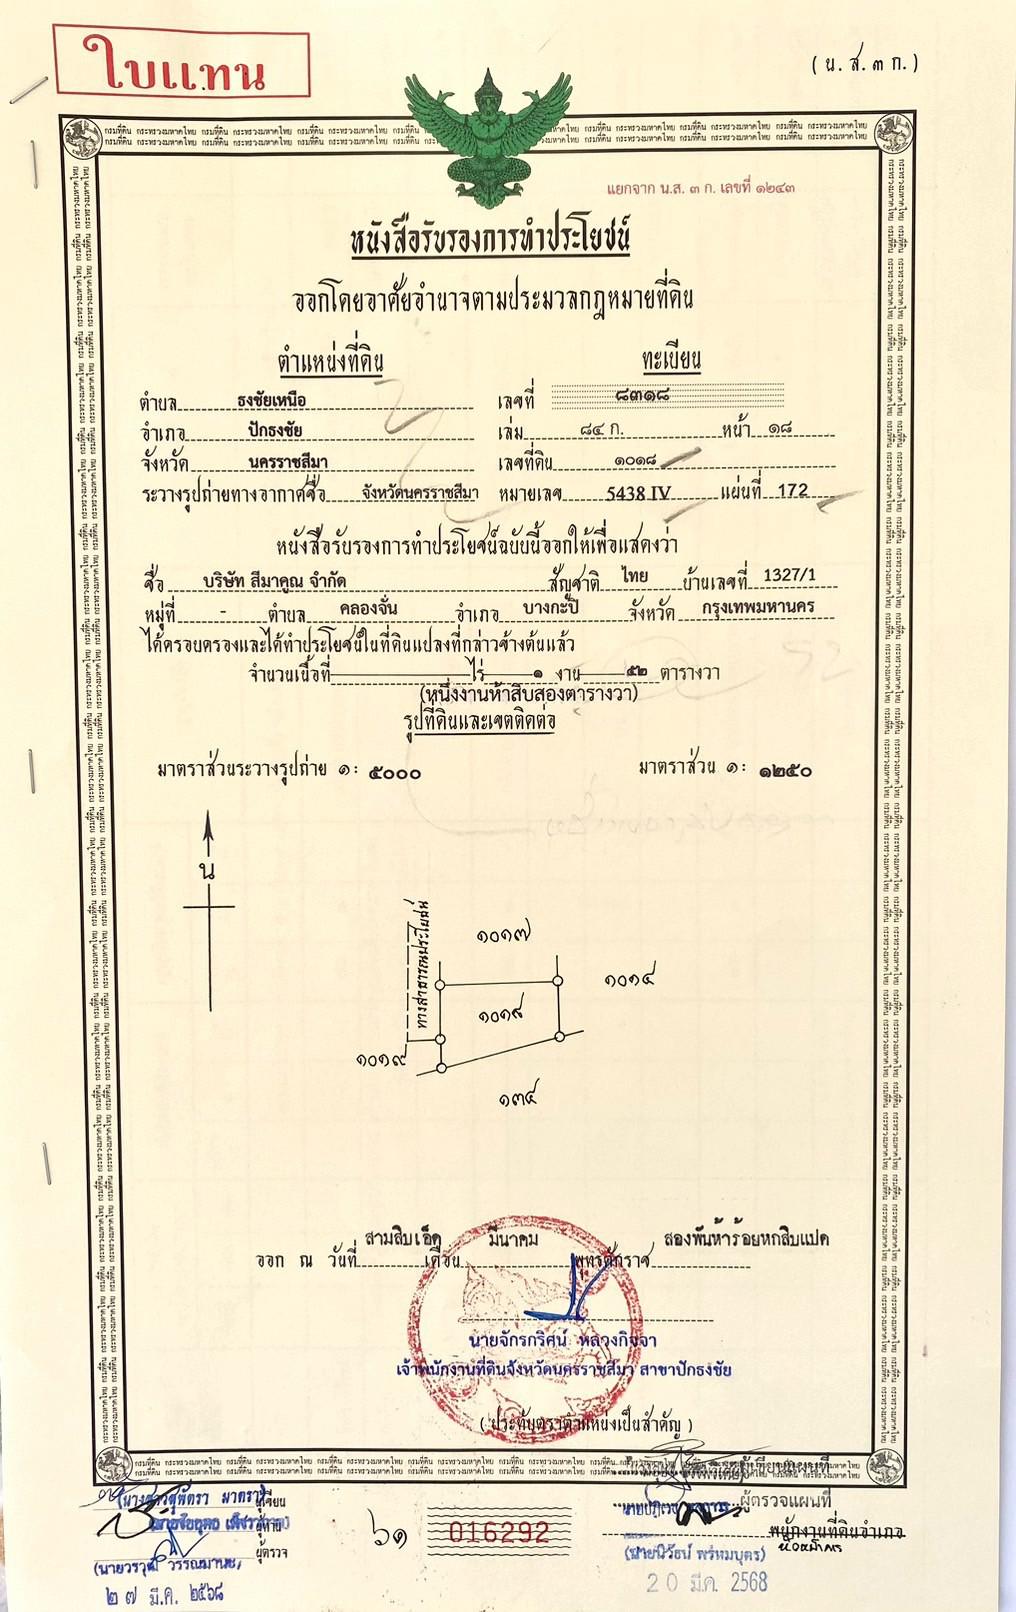 ใบแทน
(น. ส. ๓ ก.)
แยกจาก น.ส. ๓ ก. เลขที่ ๑๒๔๓
หนังสือรับรองการทำประโยชน์
ออกโดยอาศัยอำนาจตามประมวลกฎหมายที่ดิน
ตำแหน่งที่ดิน ทะเบียน
ตำบล ธงชัยเหนือ เลขที่ ๘๓๑๘
อำเภอ ปักธงชัย เล่ม ๘๔ ก. หน้า ๑๘
จังหวัด นครราชสีมา เลขที่ดิน ๑๐๑๘
ระวางรูปถ่ายทางอากาศชื่อ จังหวัดนครราชสีมา หมายเลข 5438 IV แผ่นที่ 172
หนังสือรับรองการทำประโยชน์ฉบับนี้ออกให้เพื่อแสดงว่า
ชื่อ บริษัท สีมาคูณ จำกัด สัญชาติ ไทย บ้านเลขที่ 1327/1
หมู่ที่ - ตำบล คลองจั่น อำเภอ บางกะปิ จังหวัด กรุงเทพมหานคร
ได้ครอบครองและได้ทำประโยชน์ในที่ดินแปลงที่กล่าวข้างต้นแล้ว
จำนวนเนื้อที่ ไร่ ๑ งาน ๕๒ ตารางวา
(หนึ่งงานห้าสิบสองตารางวา)
รูปที่ดินและเขตติดต่อ
มาตราส่วนระวางรูปถ่าย ๑: ๕๐๐๐ มาตราส่วน ๑: ๑๒๕๐
น
ทางสาธารณประโยชน์
๑๐๑๗
๑๐๑๔
๑๐๑๘
๑๐๑๙
๑๓๔
ออก ณ วันที่ สามสิบเอ็ด เดือน มีนาคม พุทธศักราช สองพันห้าร้อยหกสิบแปด
นายจักรกริศน์ หลวงกิจจา
เจ้าพนักงานที่ดินจังหวัดนครราชสีมา สาขาปักธงชัย
(ประทับตราตำแหน่งเป็นสำคัญ)
ผู้ตรวจแผนที่
พนักงานที่ดินอำเภอ
๖๑ 016292
(นายนิวัธน์ พรหมบุตร)
20 มี.ค. 2568
ผู้ตรวจ
๒๗ มี.ค. ๒๕๖๘